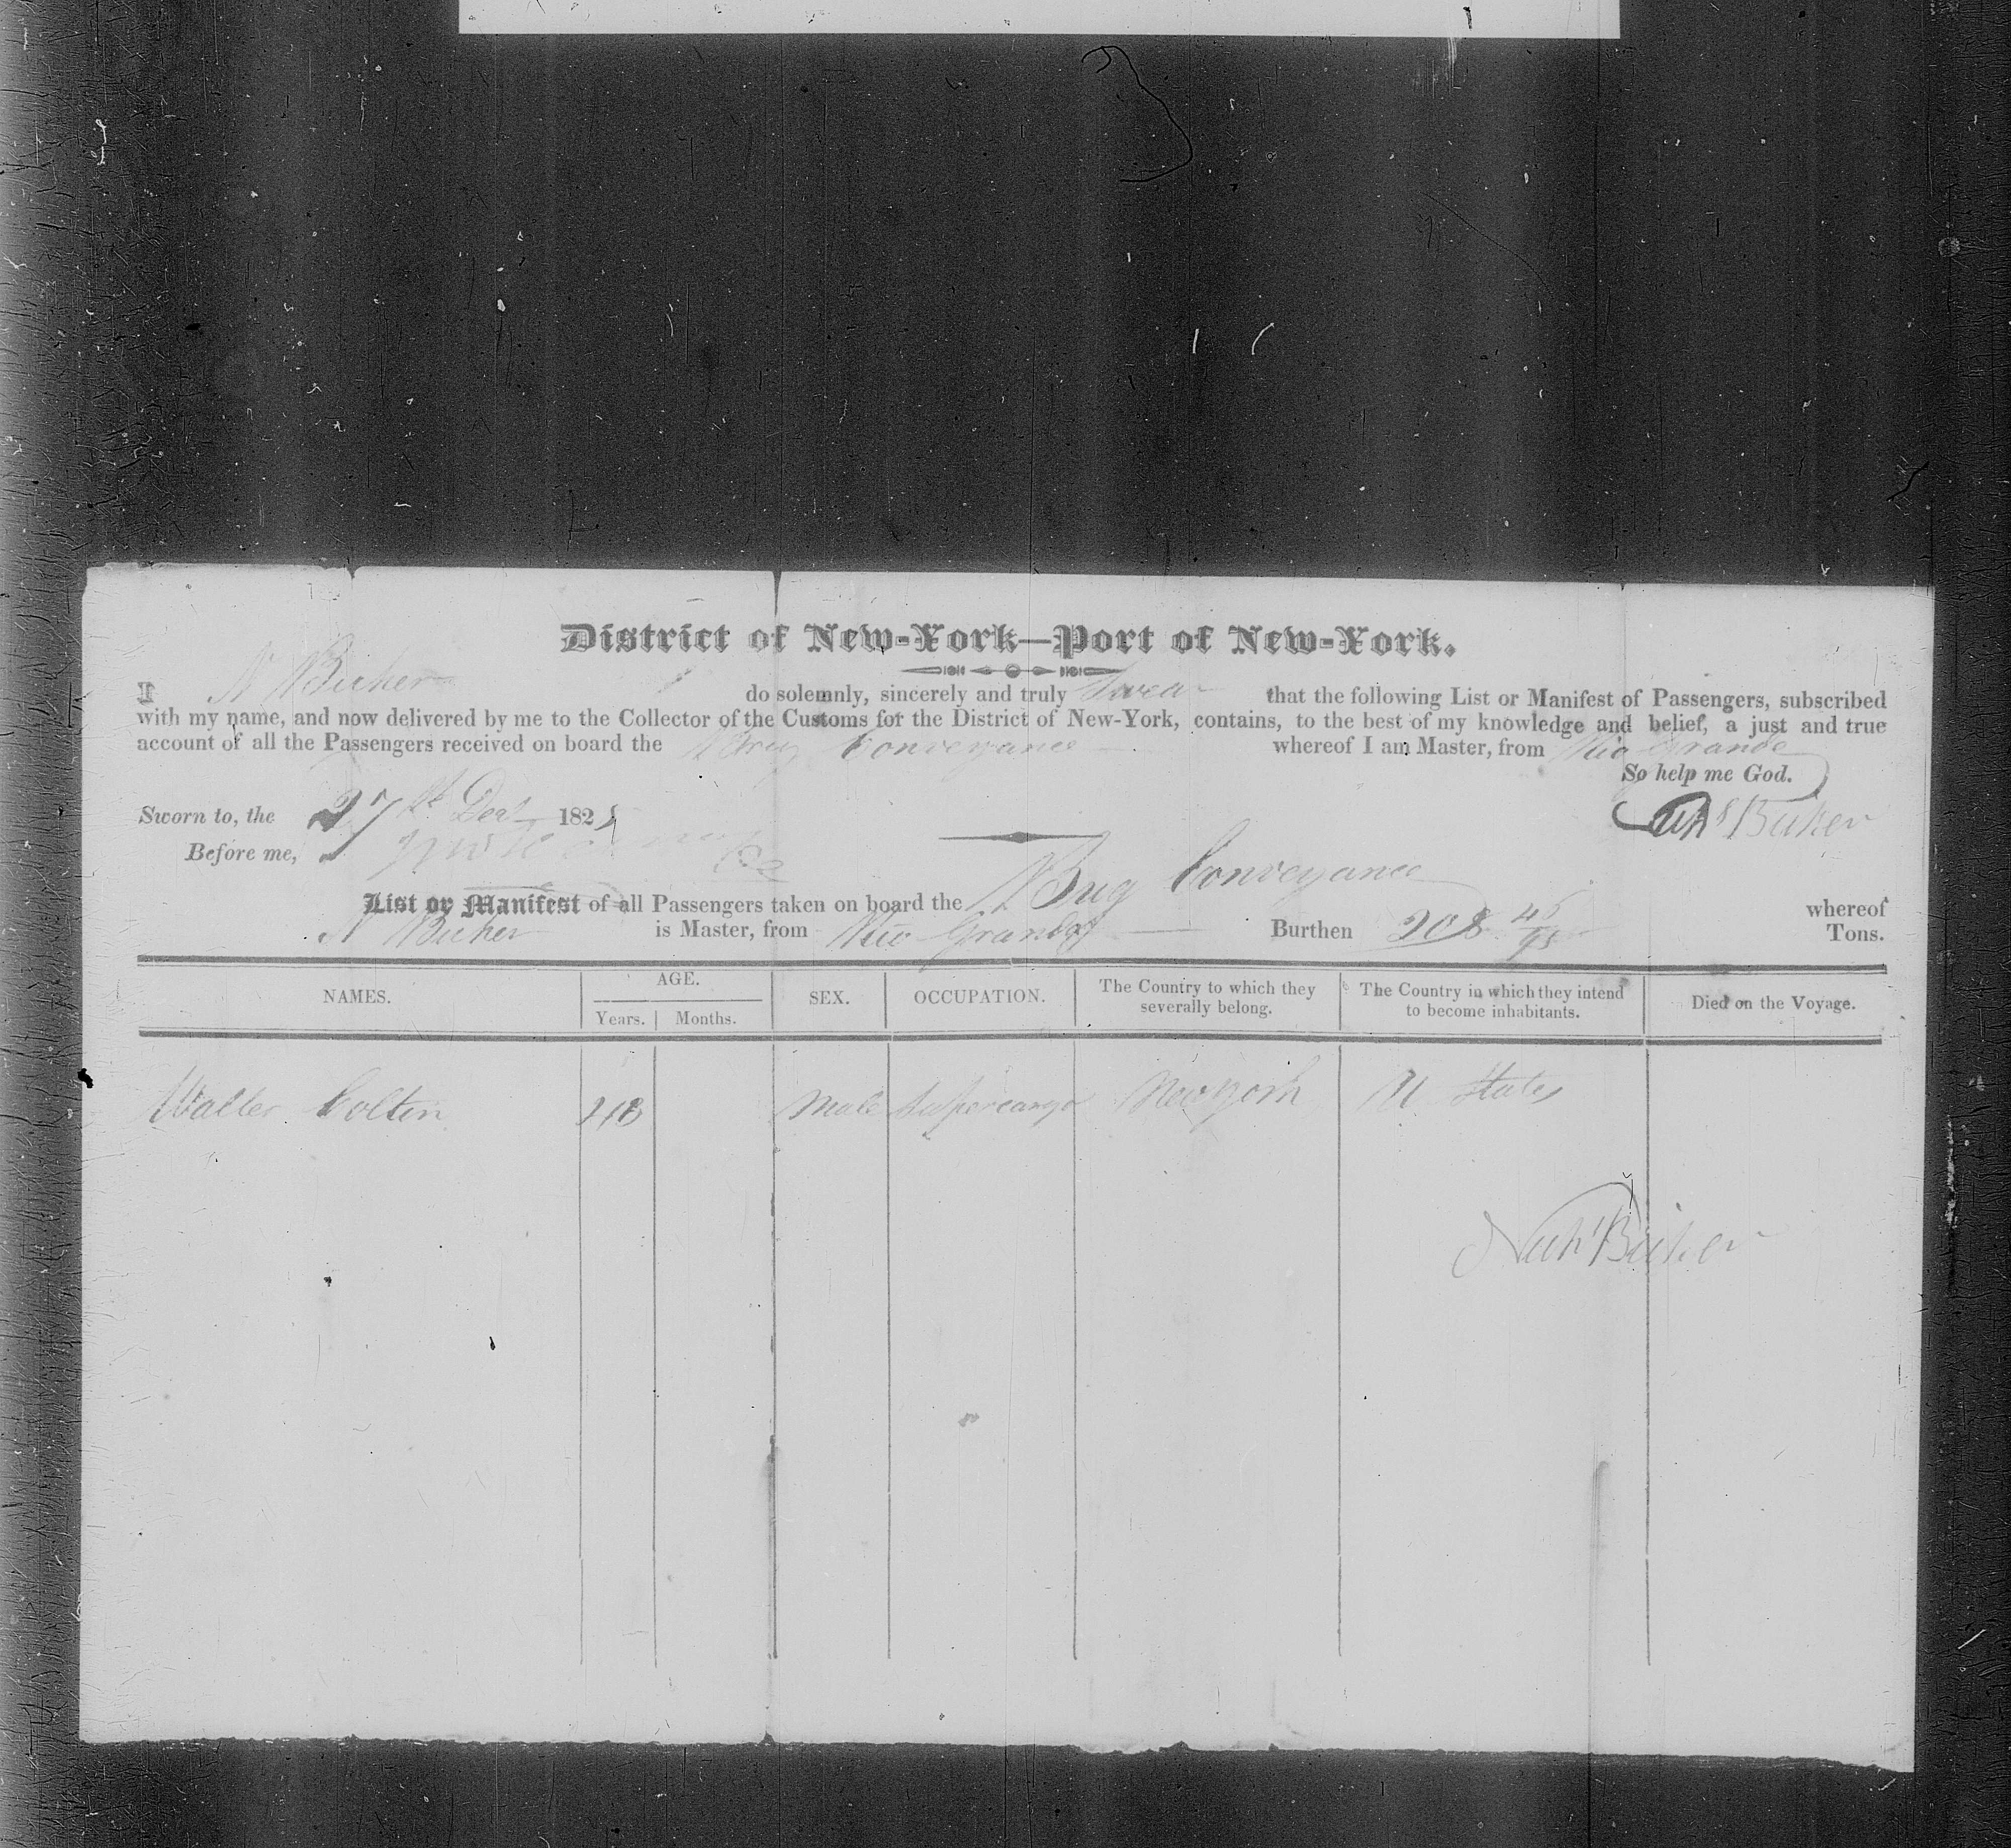 District of New-York—Port of New-York.
I N Bicker do solemnly, sincerely and truly Swear that the following List or Manifest of Passengers, subscribed
with my name, and now delivered by me to the Collector of the Customs for the District of New-York, contains, to the best of my knowledge and belief, a just and true
account of all the Passengers received on board the Brig Conveyance whereof I am Master, from Rio Grande
So help me God.
Sworn to, the 27th Decr 1825
Before me,
List or Manifest of all Passengers taken on board the Brig Conveyance whereof
N Bicker is Master, from Rio Grande Burthen 208 45/95 Tons.
NAMES. AGE. Years. Months. SEX. OCCUPATION. The Country to which they severally belong. The Country in which they intend to become inhabitants. Died on the Voyage.
Walter Colten Male Supercargo New york U States